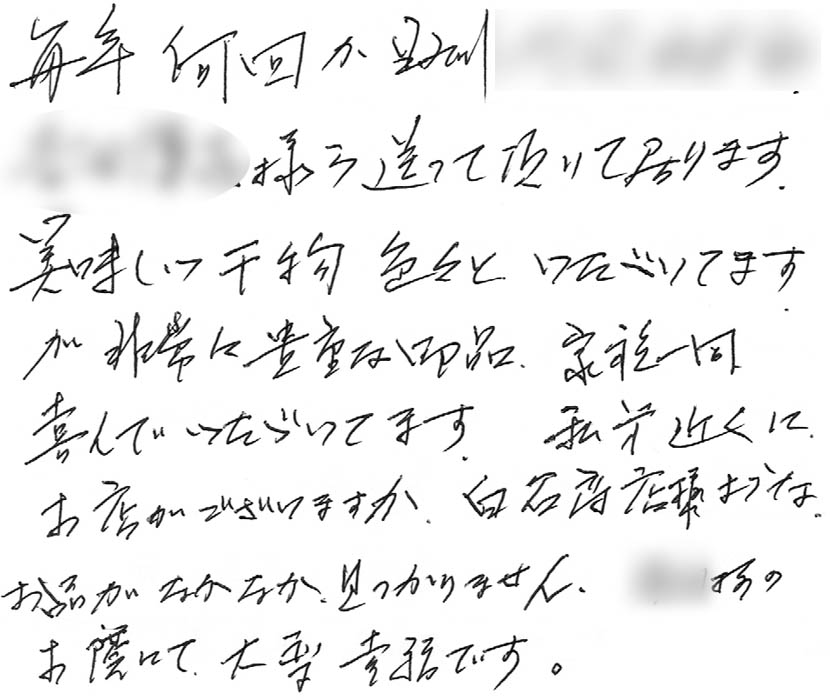 毎年何回か
様ゟ送って頂いて居ります。
美味しい干物色々といただいてます
が非常に貴重な御品、家族一同
喜んでいただいてます。私共近くに
お店がございますが、白谷商店様ような
お品がなかなか見つかりません。様の
お蔭にて大変幸福です。